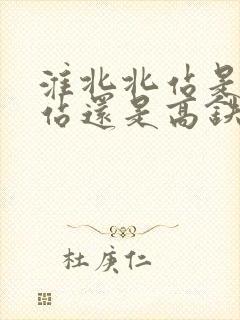 淮北北站是
站還是高鉄
杜庚仁